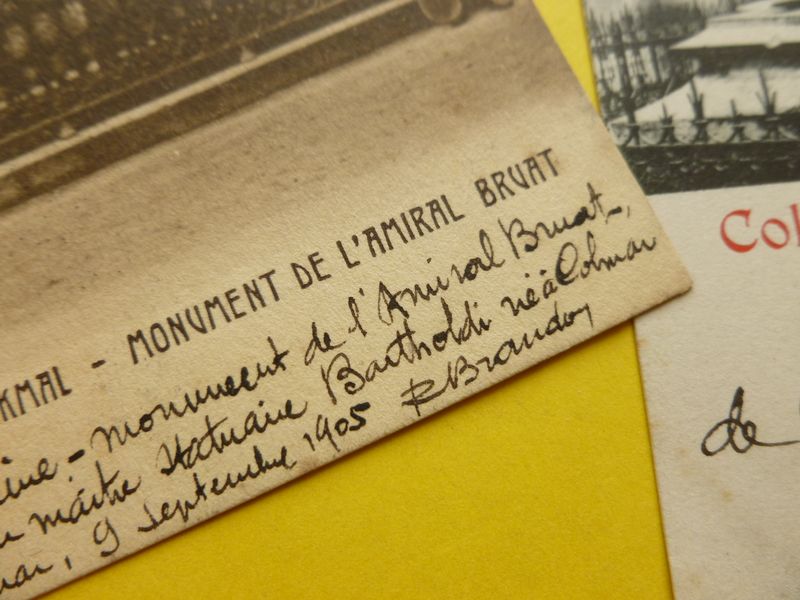 KMAL - MONUMENT DE L'AMIRAL BRUAT
monument de l'Amiral Bruat,
maître statuaire Bartholdi né à Colmar
9 septembre 1905
Col
de